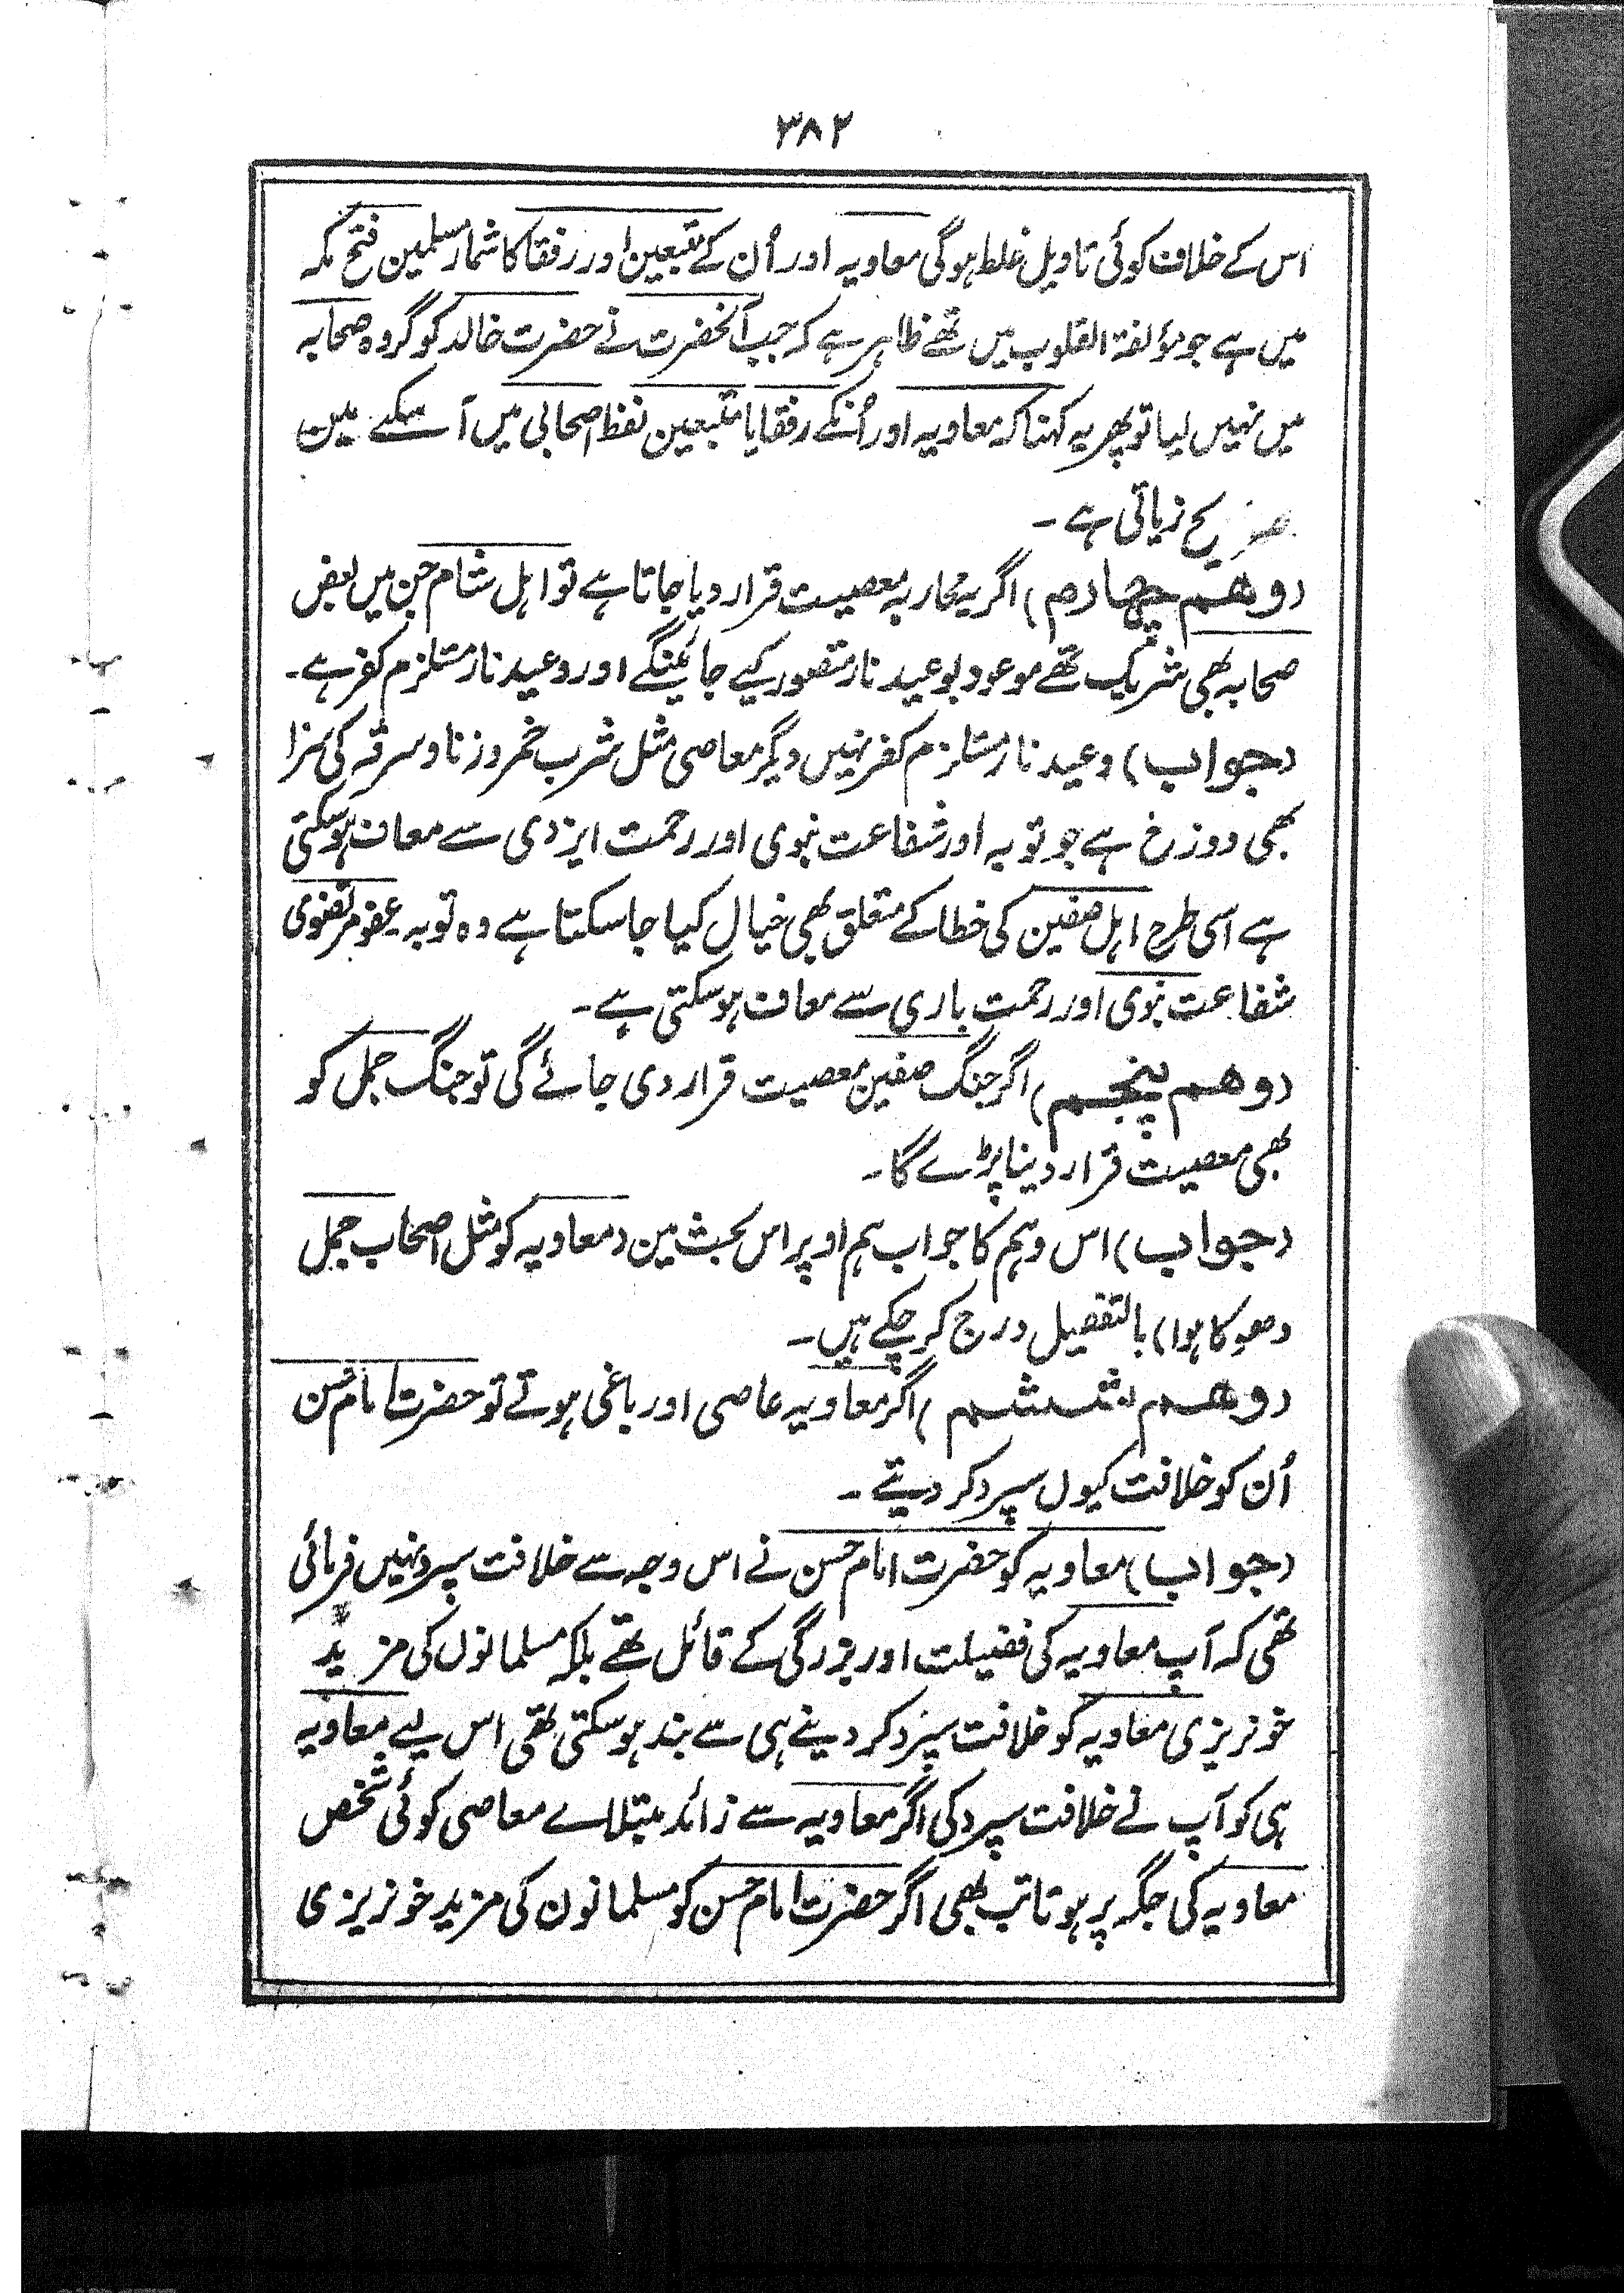 ۳۸۲
اس کے خلاف کوئی تاویل غلط ہوگی معاویہ اور اُن کے متبعین اور رفقا کا شمار مسلمین فتح مکہ
میں ہے جو مؤلفۃ القلوب میں تھے ظاہر ہے کہ جب آنحضرت نے حضرت خالد کو گروہ صحابہ
میں نہیں لیا تو پھر یہ کہنا کہ معاویہ اور اُنکے رفقا یا متبعین لفظ اصحابی میں آ سکتے ہین
صریح زیاتی ہے ۔
(وھم چہارم) اگر یہ محاربہ معصیت قرار دیا جاتا ہے تو اہل شام جن میں بعض
صحابہ بھی شریک تھے موعود بوعید نار متصور کیے جائینگے اور وعید نار مستلزم کفر ہے۔
(جواب) وعید نار مستلزم کفر نہیں دیگر معاصی مثل شرب خمر و زنا و سرقہ کی سزا
بھی دوزخ ہے جو توبہ اور شفاعت نبوی اور رحمت ایزدی سے معاف ہوسکتی
ہے اسی طرح اہل صفین کی خطا کے متعلق بھی خیال کیا جا سکتا ہے وہ توبہ عفو مرتضوی
شفاعت نبوی اور رحمت باری سے معاف ہوسکتی ہے۔
(وھم پنجم) اگر جنگ صفین معصیت قرار دی جائے گی تو جنگ جمل کو
بھی معصیت قرار دینا پڑے گا۔
(جواب) اس وہم کا جواب ہم اوپر اس بحث مین (معاویہ کو مثل اصحاب جمل
دھوکا ہوا) بالتفصیل درج کر چکے ہیں۔
(وھم ششم) اگر معاویہ عاصی اور باغی ہوتے تو حضرت امام حسن
اُن کو خلافت کیوں سپرد کر دیتے ۔
(جواب) معاویہ کو حضرت امام حسن نے اس وجہ سے خلافت سپرد نہیں فرمائی
تھی کہ آپ معاویہ کی فضیلت اور بزرگی کے قائل تھے بلکہ مسلمانوں کی مزید
خونریزی معاویہ کو خلافت سپرد کر دینے ہی سے بند ہوسکتی تھی اس لیے معاویہ
ہی کو آپ نے خلافت سپرد کی اگر معاویہ سے زائد مبتلاے معاصی کوئی شخص
معاویہ کی جگہ پر ہوتا تب بھی اگر حضرت امام حسن کو مسلمانون کی مزید خونریزی